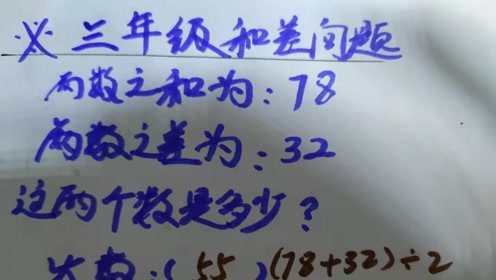 ※ 三年级和差问题
两数之和为:78
两数之差为:32
这两个数是多少?
大数:(55)(78+32)÷2